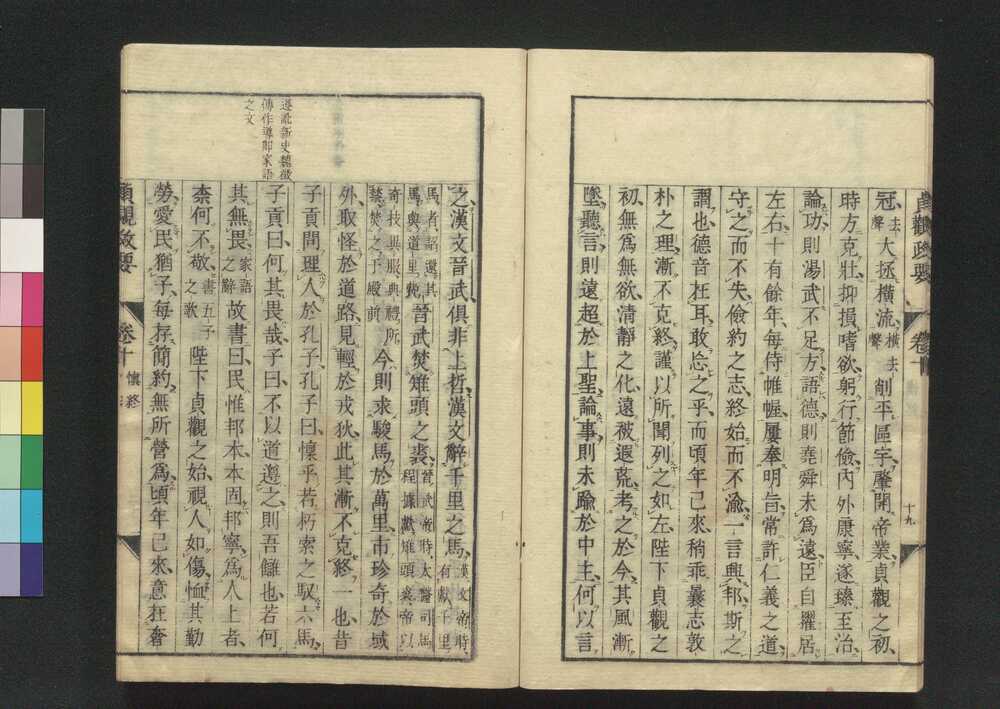 貞觀政要 卷十
十九
冠去聲大拯橫流橫去聲削平區宇肇開帝業貞觀之初
時方克壯抑損嗜欲躬行節儉内外康寧遂臻至治
論功則湯武不足方語德則堯舜未爲遠臣自擢居
左右十有餘年每侍帷幄屢奉明旨常許仁義之道
守之而不失儉約之志終始而不渝一言興邦斯之
謂也德音在耳敢忘之乎而頃年已來稍乖曩志敦
朴之理漸不克終謹以所聞列之如左陛下貞觀之
初無爲無欲清靜之化遠被遐荒考之於今其風漸
墜聽言則遠超於上聖論事則未踰於中主何以言
之漢文晉武俱非上哲漢文辭千里之馬漢文帝時有獻千里
馬者詔還其馬與道里費晉武焚雉頭之裘晉武帝時太醫司馬程據獻雉頭裘帝以
奇技異服典禮所禁焚之于殿前今則求駿馬於萬里市珍奇於域
外取怪於道路見輕於戎狄此其漸不克終一也昔
子貢問理人於孔子孔子曰懍乎若朽索之馭六馬
子貢曰何其畏哉子曰不以道遵之則吾讎也若何
其無畏家語之辭故書曰民惟邦本本固邦寧爲人上者
柰何不敬書五子之歌陛下貞觀之始視人如傷恤其勤
勞愛民猶子每存簡約無所營爲頃年已來意在奢
遵訛新史魏徵
傳作導即家語
之文
貞觀政要 卷十 愼終